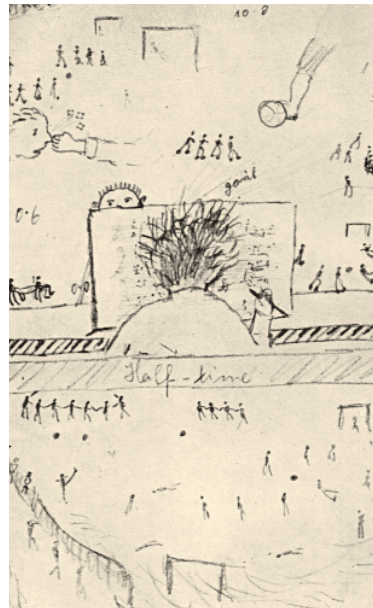 10·8
goal
0·6
Half-time